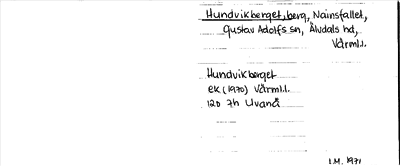 Hundvikberget, berg, Nainsfallet,
Gustav Adolfs sn, Älvdals hd,
Värml.l.
Hundvikberget
ek (1970) Värml.l.
12D 7h Uvanå
I.M. 1971